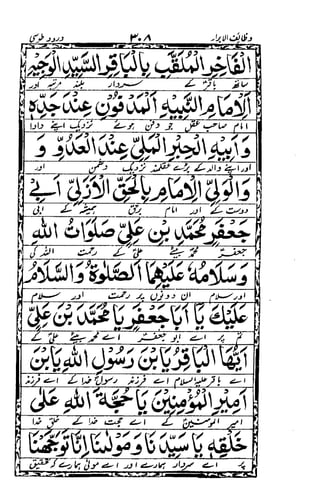 وظائف الابرار ۳۰۸ درود طوسی
الْفَاخِرِ الْمُلَقَّبِ بِالْبَاقِرِ السَّيِّدِ الْوَجِيْهِ
ساتھ باقر کے سردار بلند مرتبہ اور
الْاِمَامِ النَّبِيْهِ الْمَدْفُوْنِ عِنْدَ جَدِّهٖ
امام صاحب عقل جو دفن ہوئے نزدیک اپنے دادا
وَاَبِيْهِ الْحِبْرِ الْمَلِيِّ عِنْدَ الْعَدُوِّ وَ
اور اپنے والد کے بڑے عقلمند نزدیک دشمن اور
وَالْوَلِيِّ الْاِمَامِ بِالْحَقِّ الْاَزَلِيِّ اَبِيْ
دوست کے اور امام برحق ہمیشہ کے ابی
جَعْفَرٍ مُحَمَّدِ بْنِ عَلِيٍّ صَلَوَاتُ اللهِ
جعفر محمد بیٹے علی کے رحمت اللہ کی
وَسَلَامُهُ عَلَيْهِمَا اَلصَّلٰوةُ وَالسَّلَامُ
اور سلام ان دونوں پر رحمت اور سلام
عَلَيْكَ يَا اَبَا جَعْفَرٍ يَا مُحَمَّدَ بْنَ عَلِيٍّ
تم پر اے ابو جعفر اے محمد بیٹے علی کے
اَيُّهَا الْبَاقِرُ يَابْنَ رَسُوْلِ اللهِ يَابْنَ
اے باقر علیہ السلام اے فرزند رسول خدا کے اے فرزند
اَمِيْرِ الْمُؤْمِنِيْنَ يَا حُجَّةَ اللهِ عَلٰى
امیر المومنین کے اے حجت خدا کے خلق خدا
خَلْقِهٖ يَا سَيِّدَنَا وَمَوْلٰينَا اِنَّا تَوَجَّهْنَا
پر اے سردار ہمارے اور اے مولیٰ ہمارے کہ تحقیق